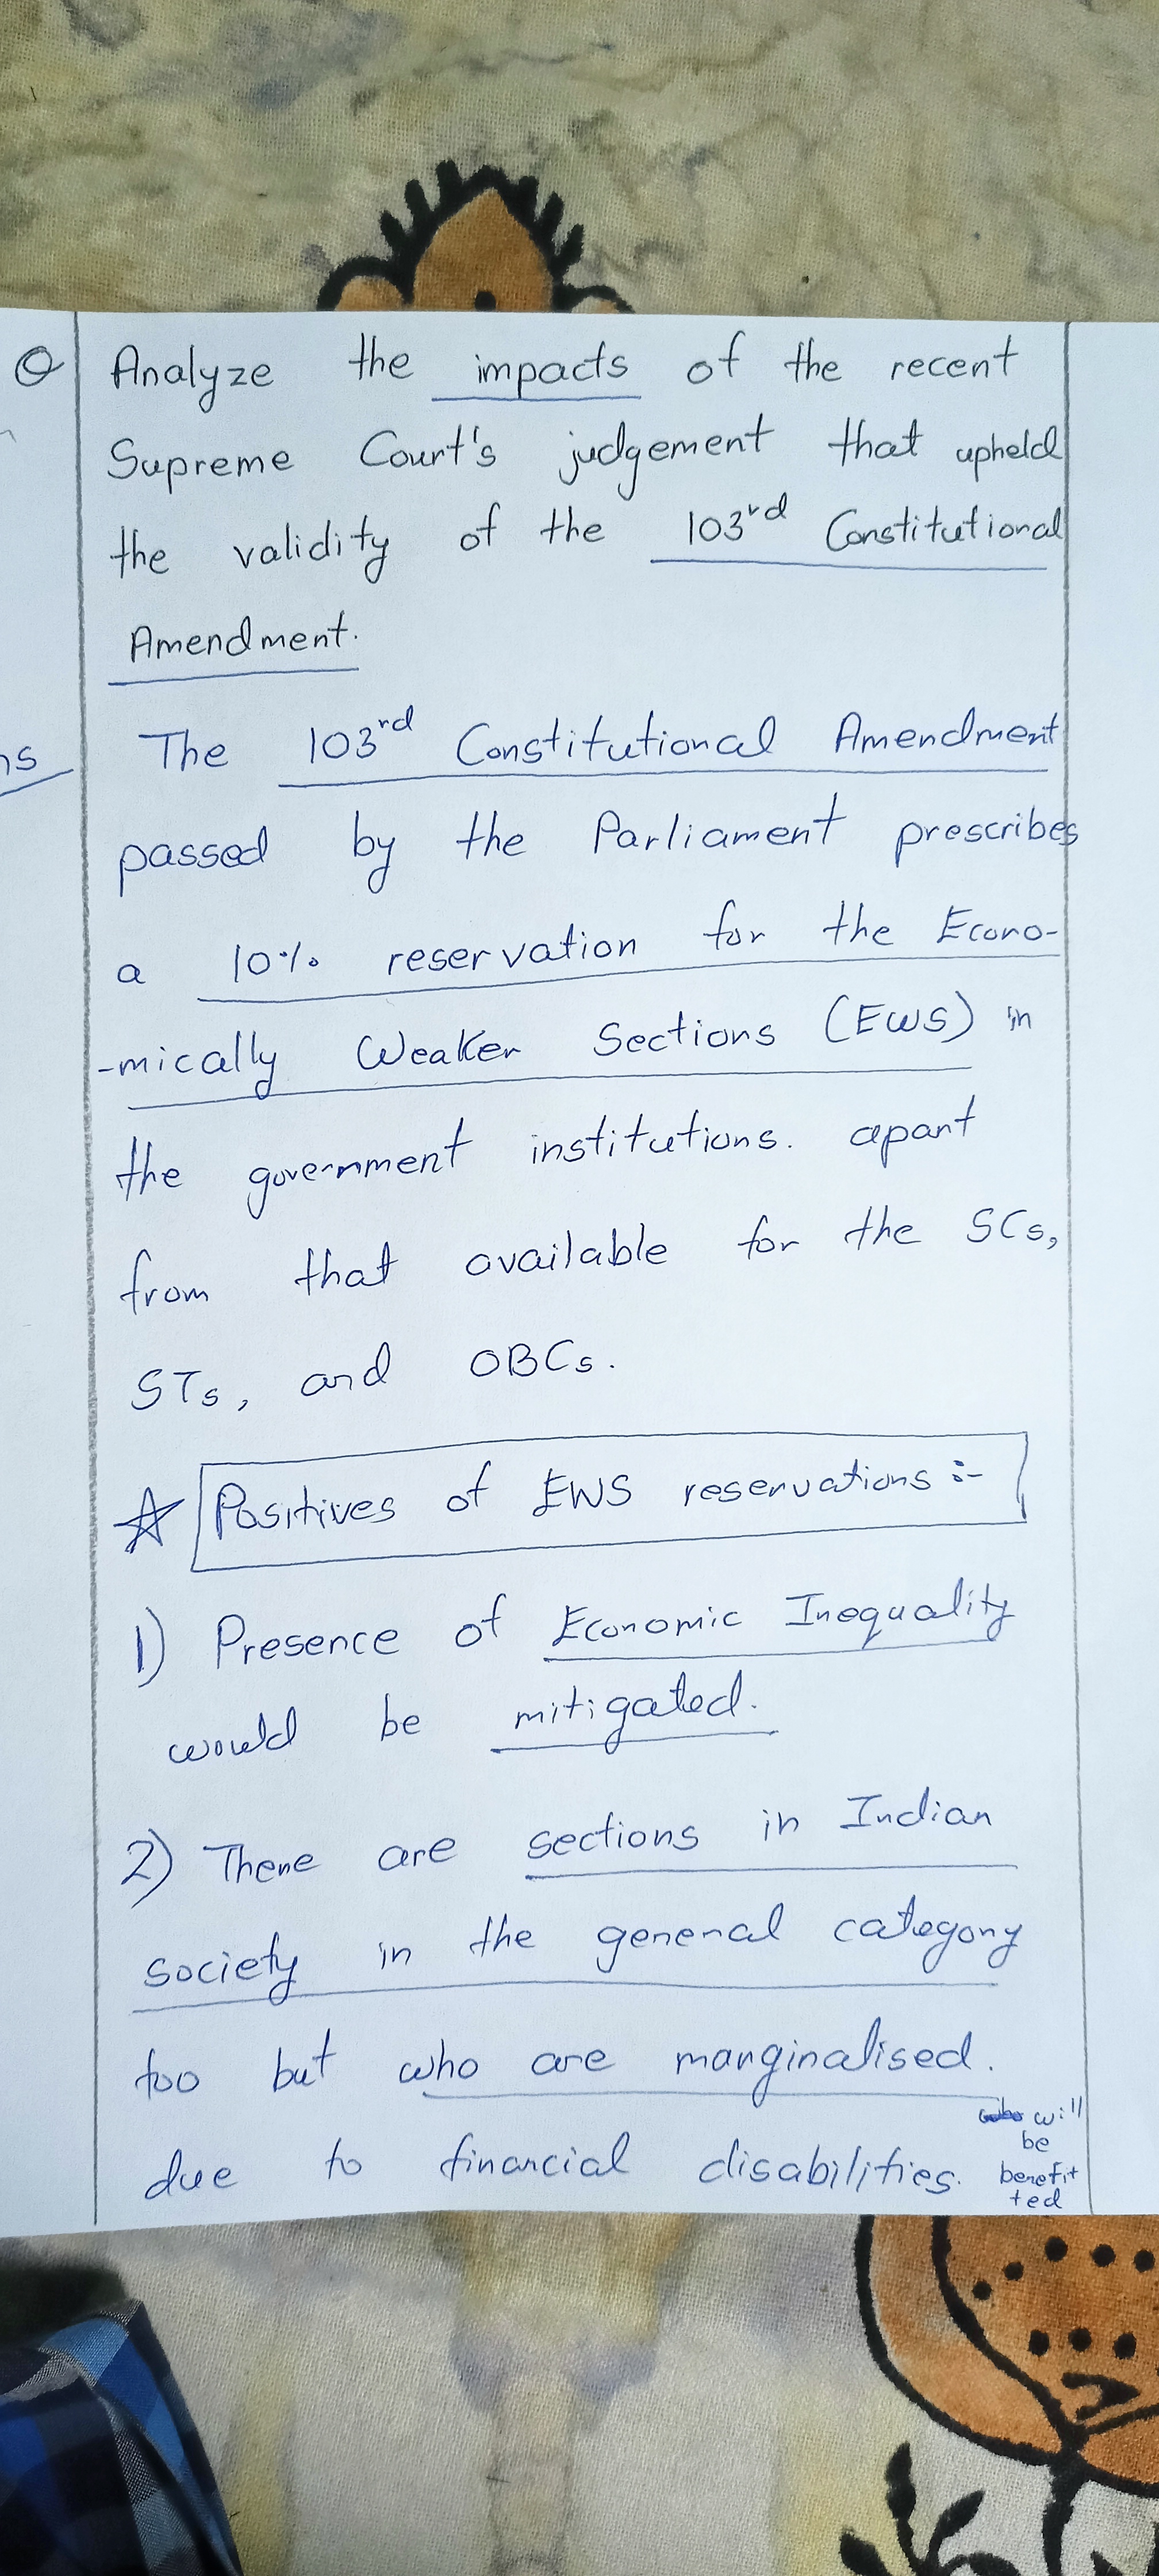 Q Analyze the impacts of the recent
Supreme Court's judgement that upheld
the validity of the 103rd Constitutional
Amendment.
ns The 103rd Constitutional Amendment
passed by the Parliament prescribes
a 10% reservation for the Econo-
-mically Weaker Sections (EWS) in
the government institutions. apart
from that available for the SCs,
STs, and OBCs.
☆ Positives of EWS reservations :-
1) Presence of Economic Inequality
would be mitigated.
2) There are sections in Indian
society in the general category
too but who are marginalised.
due to financial disabilities. will
be
benefit
ted